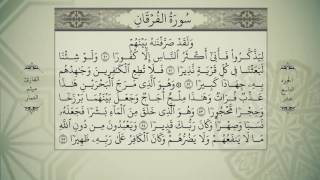 سُورَةُ الْفُرْقَانِ
وَلَقَدْ صَرَّفْنَاهُ بَيْنَهُمْ
لِيَذَّكَّرُوا فَأَبَىٰ أَكْثَرُ النَّاسِ إِلَّا كُفُورًا ۝ وَلَوْ شِئْنَا
لَبَعَثْنَا فِي كُلِّ قَرْيَةٍ نَذِيرًا ۝ فَلَا تُطِعِ الْكَافِرِينَ وَجَاهِدْهُمْ
بِهِ جِهَادًا كَبِيرًا ۝ وَهُوَ الَّذِي مَرَجَ الْبَحْرَيْنِ هَٰذَا
عَذْبٌ فُرَاتٌ وَهَٰذَا مِلْحٌ أُجَاجٌ وَجَعَلَ بَيْنَهُمَا بَرْزَخًا
وَحِجْرًا مَحْجُورًا ۝ وَهُوَ الَّذِي خَلَقَ مِنَ الْمَاءِ بَشَرًا فَجَعَلَهُ
نَسَبًا وَصِهْرًا وَكَانَ رَبُّكَ قَدِيرًا ۝ وَيَعْبُدُونَ مِنْ دُونِ اللَّهِ
مَا لَا يَنْفَعُهُمْ وَلَا يَضُرُّهُمْ وَكَانَ الْكَافِرُ عَلَىٰ رَبِّهِ ظَهِيرًا ۝
الجزء
التاسع
عشر
القارئ
ميثم
التمار